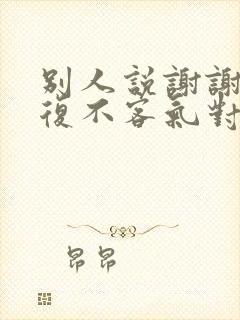 別人說謝謝
復不客氣對
昂昂